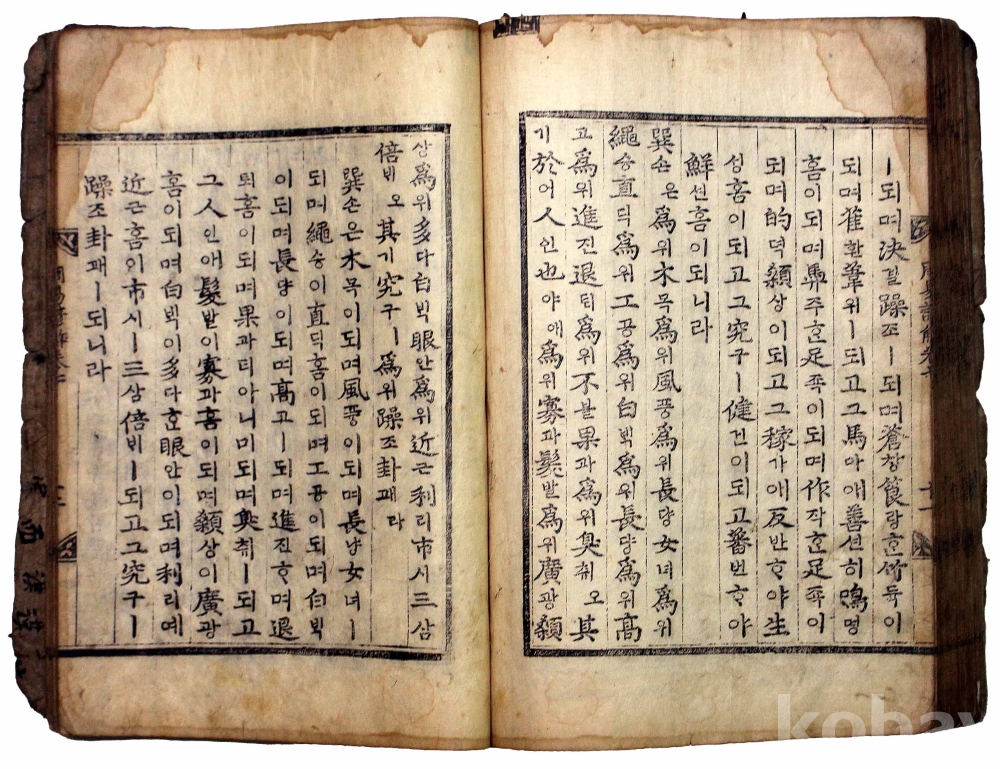 ㅣ되며決결躁조ㅣ되며蒼창筤랑ᄒᆞᆫ竹듁이
되며萑환葦위ㅣ되고그馬마애善션히鳴명
홈이되며馵주ᄒᆞᆫ足죡이되며作작ᄒᆞᆫ足죡이
되며的뎍顙상이되고그稼가애反반ᄒᆞ야生
ᄉᆡᆼ홈이되고그究구ㅣ健건이되고蕃번ᄒᆞ야
鮮션홈이되니라
巽손은爲위木목爲위風풍爲위長댱女녀爲위
繩승直딕爲위工공爲위白ᄇᆡᆨ爲위長댱爲위高
고爲위進진退퇴爲위不블果과爲위臭취오其
기於어人인也야애爲위寡과髮발爲위廣광顙
상爲위多다白ᄇᆡᆨ眼안爲위近근利리市시三삼
倍ᄇᆡ오其기究구ㅣ爲위躁조卦괘라
巽손은木목이되며風풍이되며長댱女녀ㅣ
되며繩승이直딕홈이되며工공이되며白ᄇᆡᆨ
이되며長댱이되며高고ㅣ되며進진ᄒᆞ며退
퇴홈이되며果과티아니미되며臭취ㅣ되고
그人인애髮발이寡과홈이되며顙상이廣광
홈이되며白ᄇᆡᆨ이多다ᄒᆞᆫ眼안이되며利리예
近근홈이市시ㅣ三삼倍ᄇᆡㅣ되고그究구ㅣ
躁조卦괘ㅣ되니라
周易諺解卷
kobay